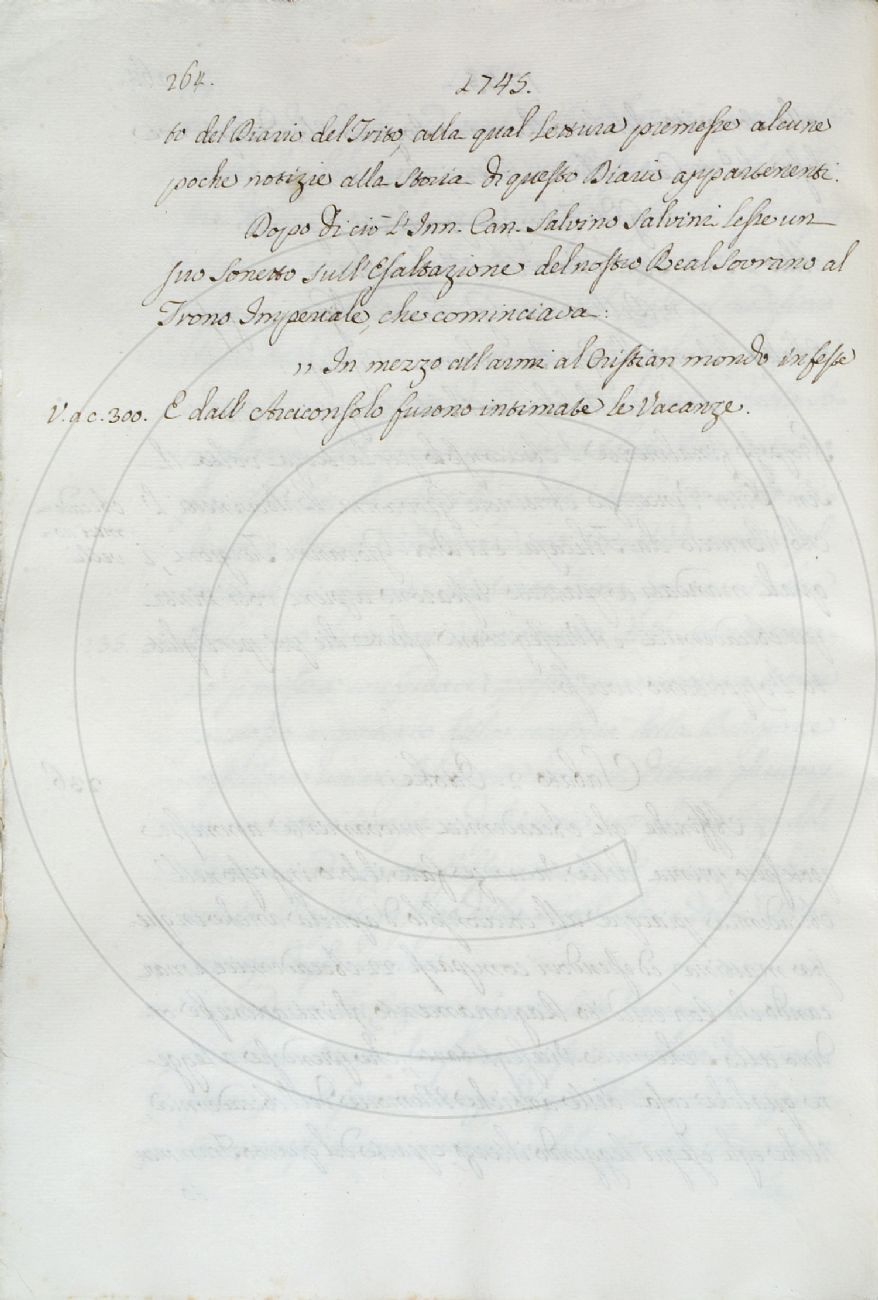 264. 1745.
to del Diario del Trito, alla qual Lettura premesse alcune
poche notizie alla Storia di questo Diario appartenenti.
Dopo di ciò L'Inn. Can. Salvino Salvini Lesse un
suo Sonetto sull'Esaltazione del nostro Real Sovrano al
Trono Imperiale, che cominciava:
,, In mezzo all'armi al Cristian mondo infeste
V. a c. 300. E dall'Arciconsolo furono intimate le Vacanze.